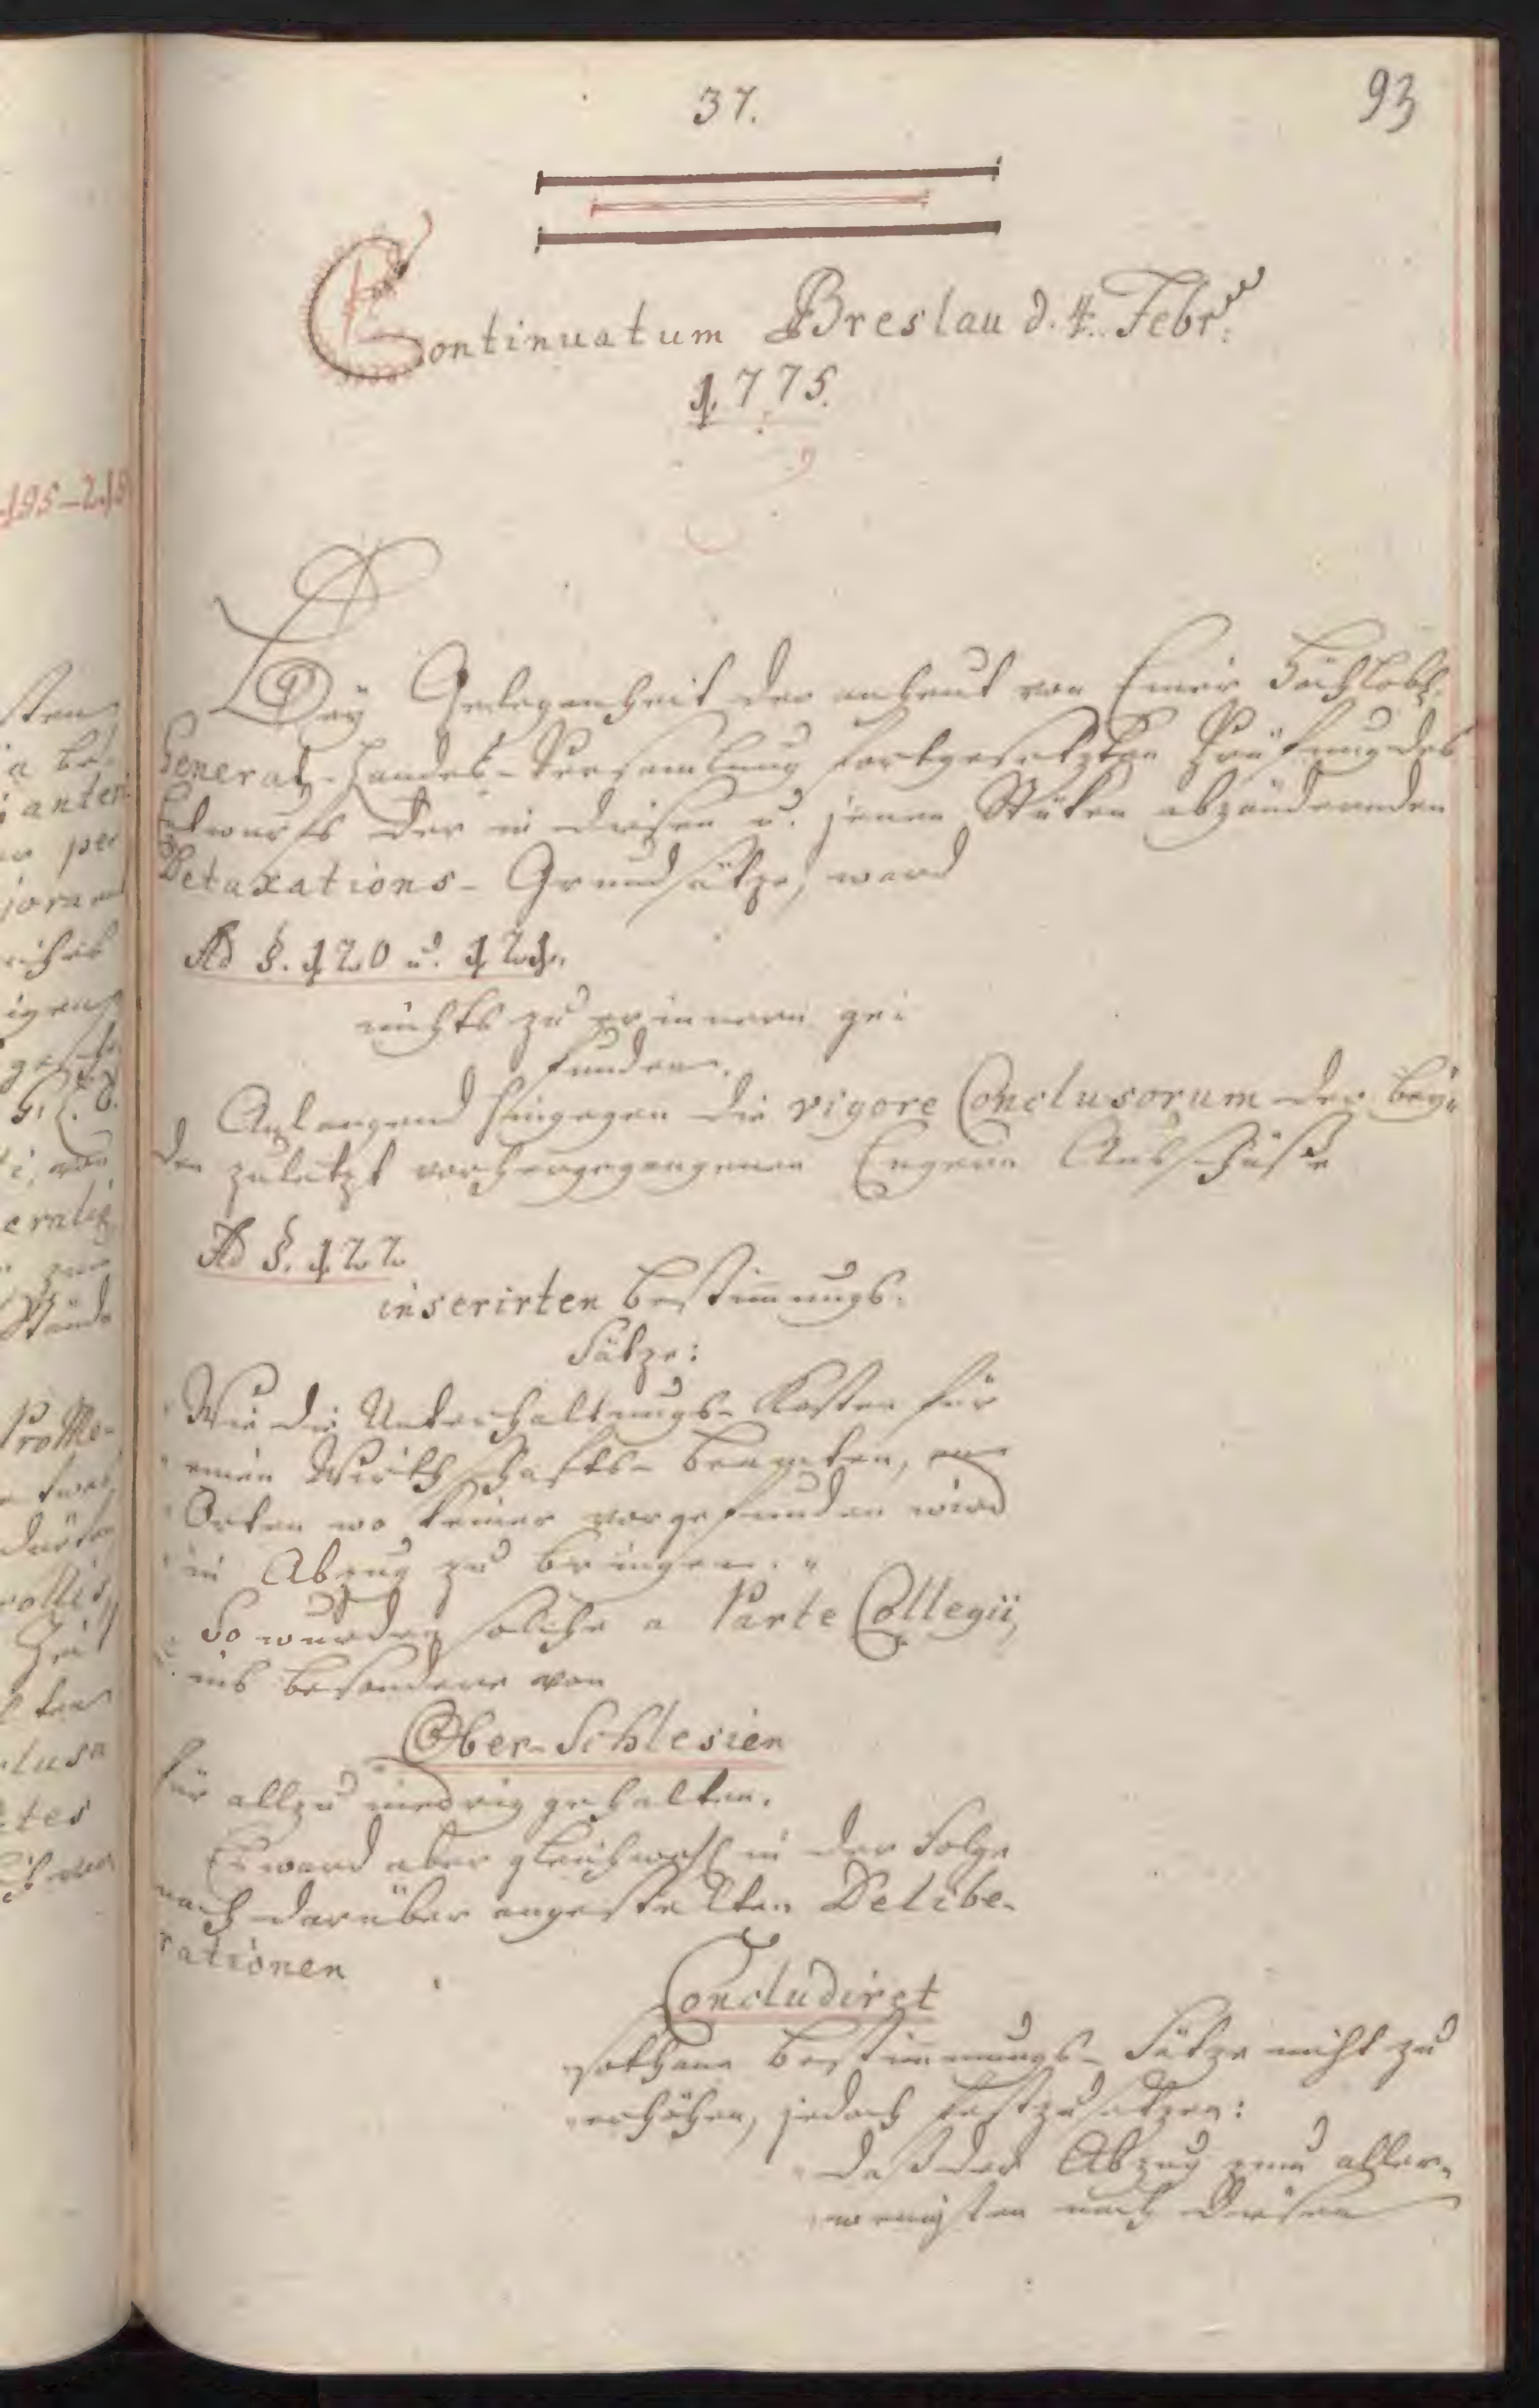 37.
93
Continuatum Breslau d. 4. Febr:
1775.
Bey Gelegenheit der anheut von Einer Hochlöbl.
General-Landes-Versamlung fortgesetzten Prüfung des
Entwurfs der in diesen u. jenen Stüken abzuändernden
Detaxations-Grundsätze, ward
Ad §. 120 u. 121.
nichts zu erinnern ge-
funden.
Anlangend hingegen die vigore Conclusorum der bey-
den zuletzt vorhergegangenen Engern Ausschüße
Ad §. 122
inserirten Bestimmungs-
Sätze:
Wie die Unterhaltungs-Kosten für
einen Wirthschafts-Beamten, an
Orten wo keiner vorgefunden wird
in Abzug zu bringen."
So wurden solche a Parte Collegii,
ins besondere von
Ober-Schlesien
für allzu niedrig gehalten.
Es ward aber gleichwohl in der Folge
nach darüber angestellten Delibe-
rationen
Concludiret
sothane Bestimmungs-Sätze nicht zu
erhöhen, jedoch festzusetzen:
daß der Abzug zum aller-
wenigsten nach diesen